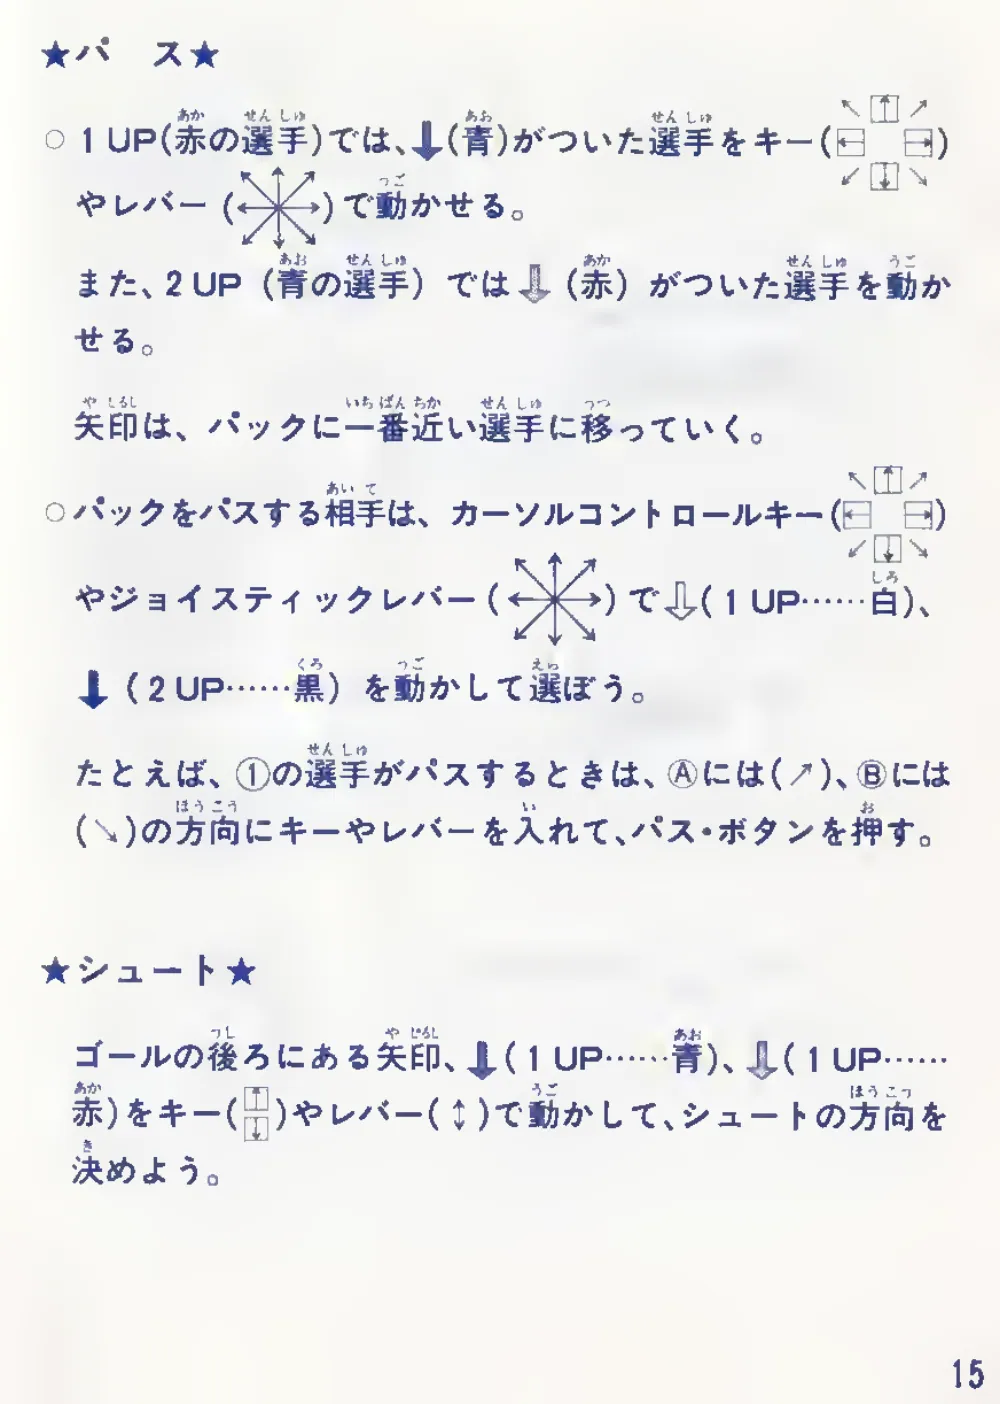 ★パ ス★
○1UP(赤の選手)では、↓(青)がついた選手をキー(↖↑↗←→↙↓↘)
やレバー(↖↑↗←→↙↓↘)で動かせる。
また、2UP(青の選手)では⇩(赤)がついた選手を動か
せる。
矢印は、パックに一番近い選手に移っていく。
○パックをパスする相手は、カーソルコントロールキー(↖↑↗←→↙↓↘)
やジョイスティックレバー(↖↑↗←→↙↓↘)で⇩(1UP……白)、
↓(2UP……黒)を動かして選ぼう。
たとえば、①の選手がパスするときは、Ⓐには(↗)、Ⓑには
(↘)の方向にキーやレバーを入れて、パス・ボタンを押す。
★シュート★
ゴールの後ろにある矢印、↓(1UP……青)、⇩(1UP……
赤)をキー(↑↓)やレバー(↕)で動かして、シュートの方向を
決めよう。
15